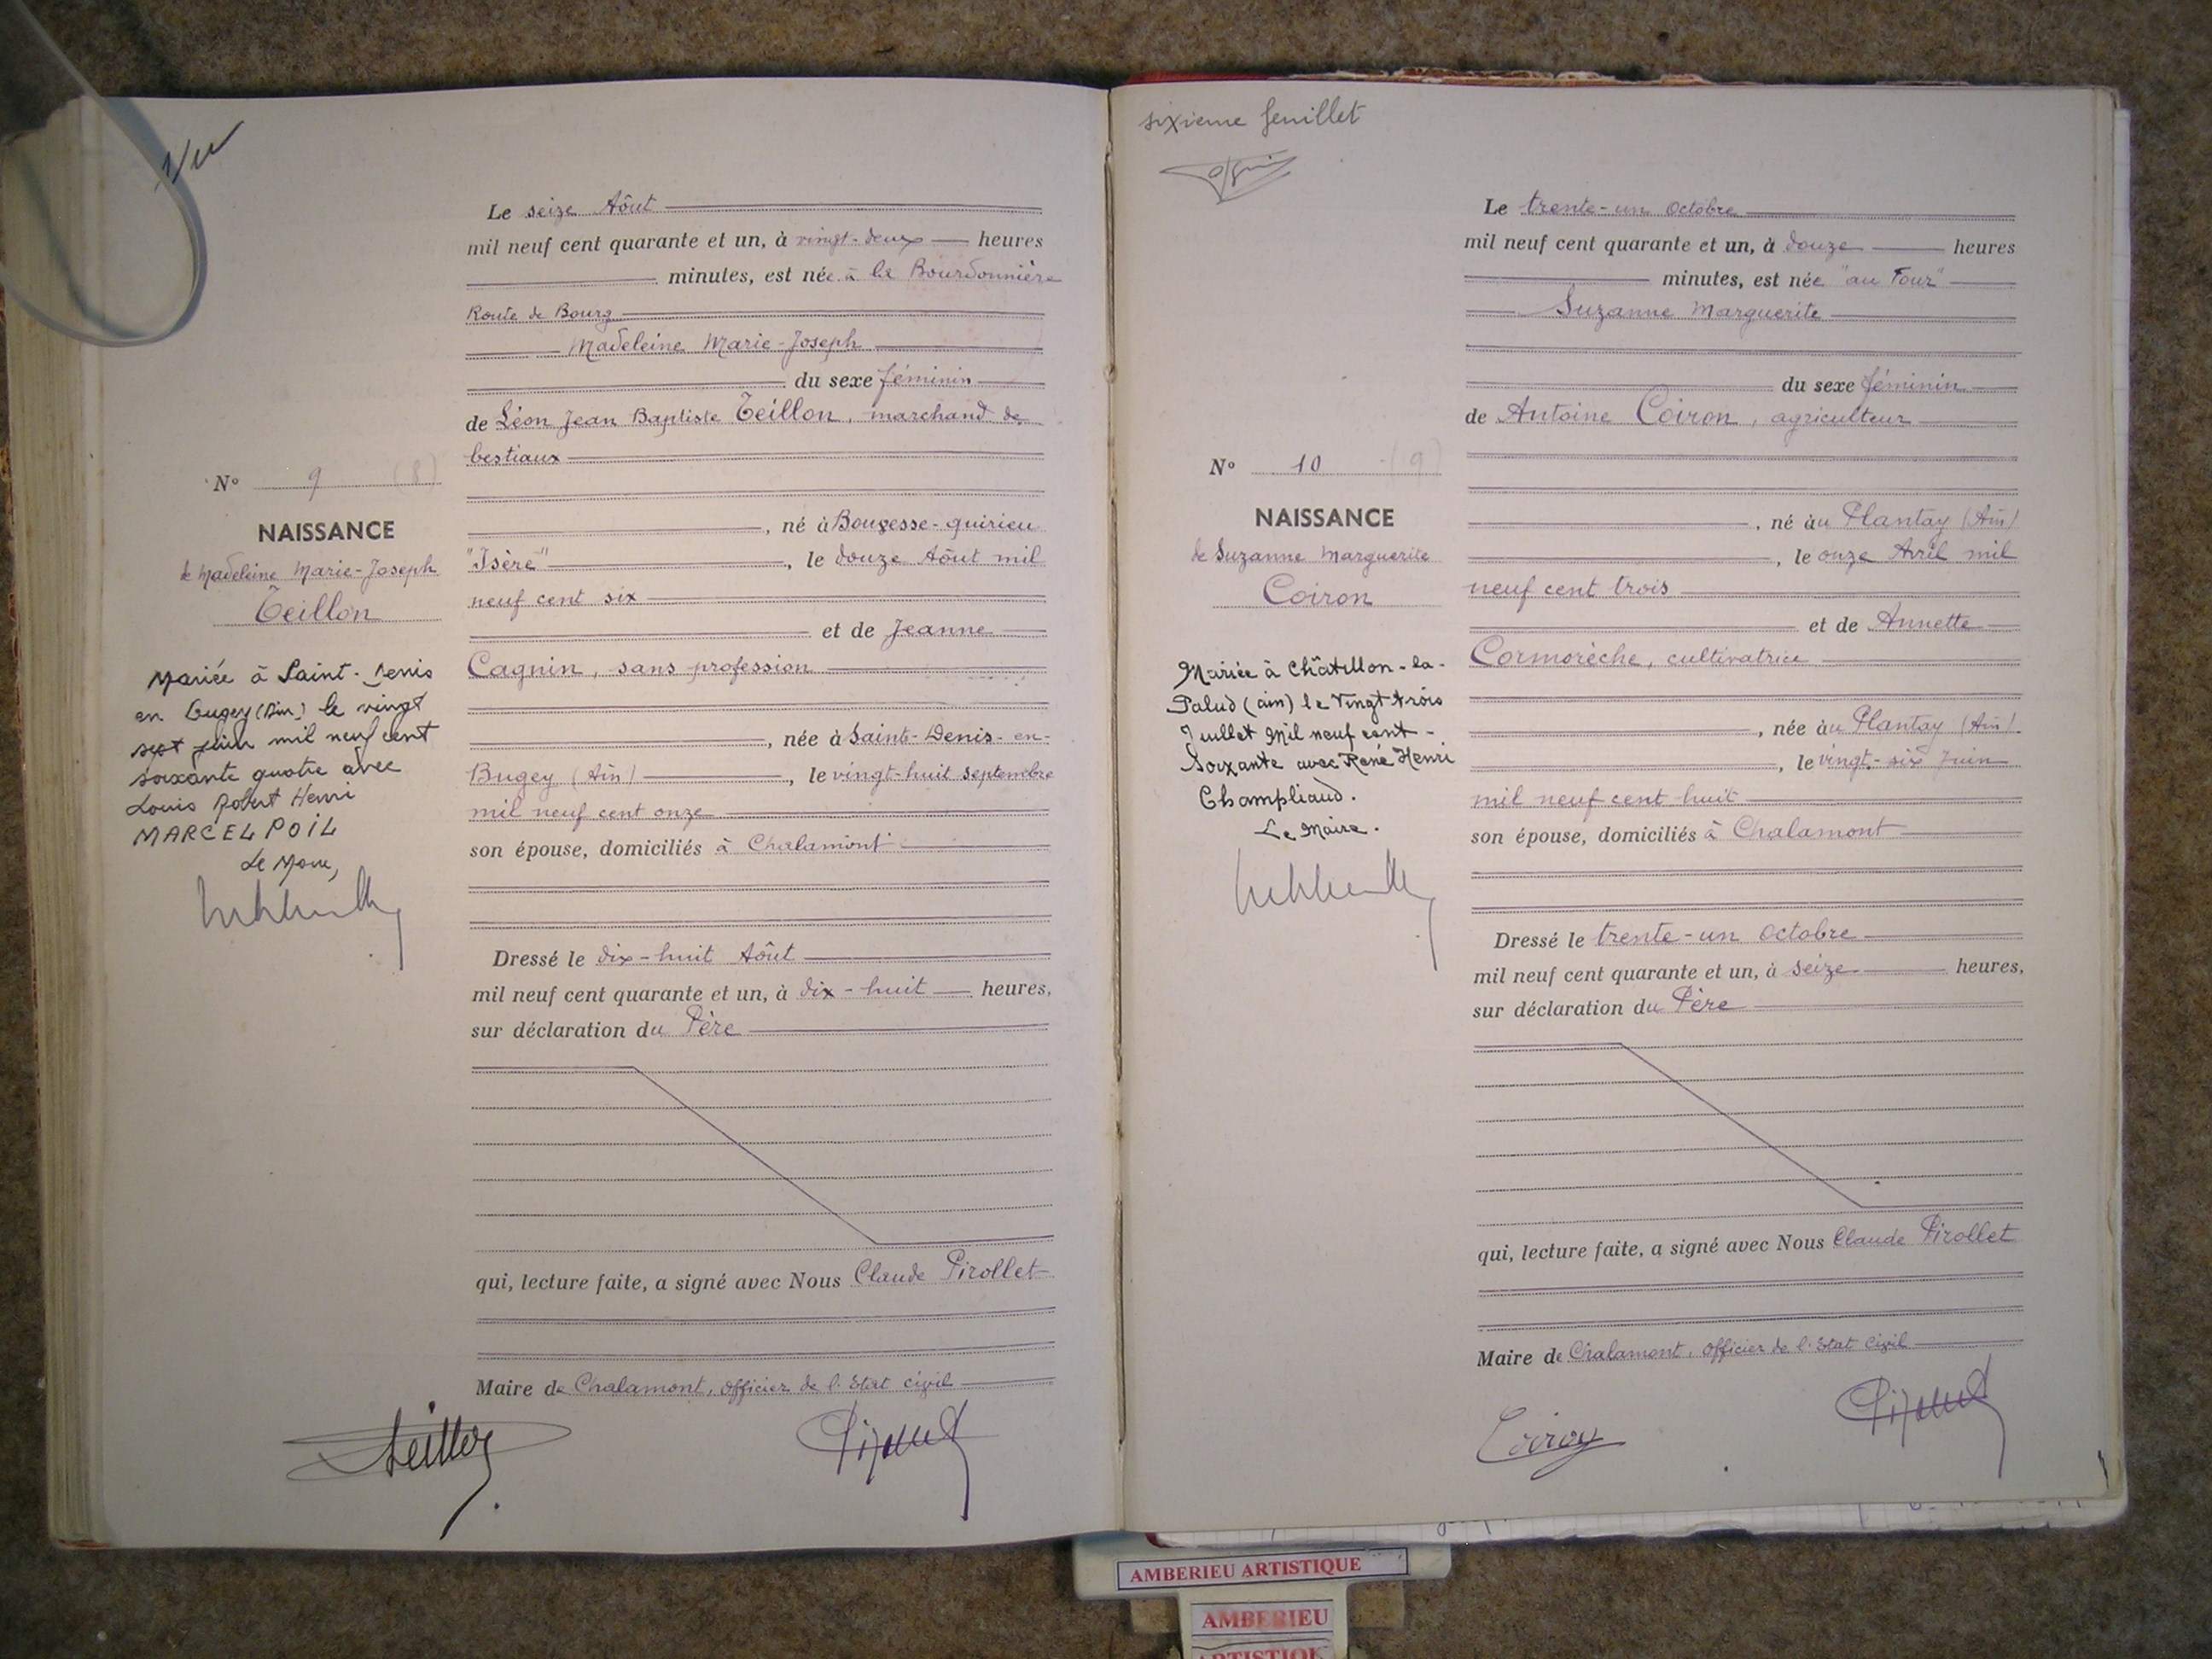 Vu
Le seize Aôut
mil neuf cent quarante et un, à vingt-deux heures
minutes, est née à la Bourdonnière
Route de Bourg
Madeleine Marie-Joseph
du sexe féminin
de Léon Jean Baptiste Teillon, marchand de
bestiaux
N° 9 (8)
NAISSANCE
de Madeleine Marie-Joseph
Teillon
, né à Bougesse-quirieu
"Isère", le douze Aôut mil
neuf cent six
et de Jeanne
Cagnin, sans profession
, née à Saint-Denis-en-
Bugey (Ain), le vingt-huit septembre
mil neuf cent onze
son épouse, domiciliés à Chalamont
Mariée à Saint-Denis
en Bugey (Ain) le vingt
sept juin mil neuf cent
soixante quatre avec
Louis Robert Henri
MARCELPOIL
Le Maire,
Dressé le dix-huit Aôut
mil neuf cent quarante et un, à dix-huit heures,
sur déclaration du Père
qui, lecture faite, a signé avec Nous Claude Pirollet
Maire de Chalamont, officier de l'Etat civil
Teillon
Pirollet
sixieme feuillet
Le trente-un octobre
mil neuf cent quarante et un, à douze heures
minutes, est née "au Four"
Suzanne Marguerite
du sexe féminin
de Antoine Coiron, agriculteur
N° 10 (9)
NAISSANCE
de Suzanne Marguerite
Coiron
, né àu Plantay (Ain)
, le onze Avril mil
neuf cent trois
et de Annette
Cormorèche, cultivatrice
, née àu Plantay (Ain)
, le vingt-six Juin
mil neuf cent huit
son épouse, domiciliés à Chalamont
Mariée à Châtillon-la-
Palud (ain) le Vingt trois
Juillet Mil neuf cent-
Soixante avec René Henri
Champliaud.
Le Maire.
Dressé le trente-un octobre
mil neuf cent quarante et un, à seize heures,
sur déclaration du Père
qui, lecture faite, a signé avec Nous Claude Pirollet
Maire de Chalamont, officier de l'Etat civil
Coiron
Pirollet
AMBERIEU ARTISTIQUE
AMBERIEU
ARTISTIQU